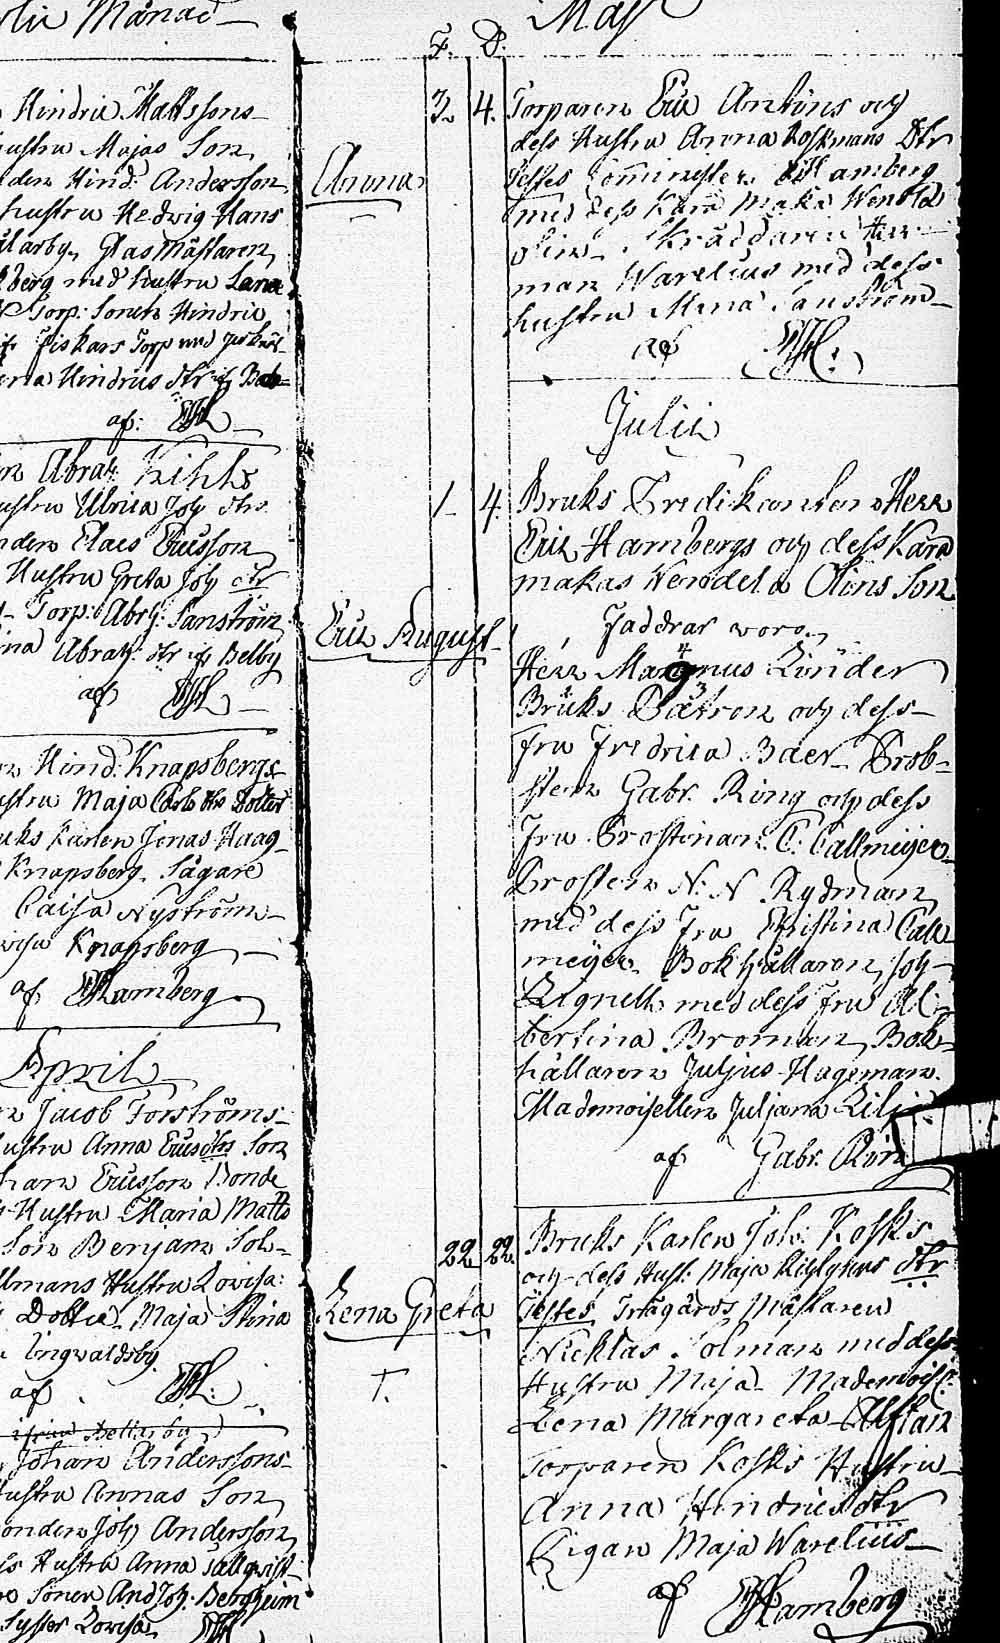 Månad
Hindric Mattssons
hustru Majas Son
den Hind: Andersson
hustru Hedwig Hans
Glas Mästaren
berg med hustru Lena
Torp: Sonen Hindric
Fiskars Torp med
Hindrics dtr
af: EH
Abrah: Kihls
hustru Ulrica Joh dtrs
Claes Ericsson
Hustru Greta Joh dtr
Torp: Abrh: Sanström
Abrah: dtr fr Belby
af EH
Hind: Knapsbergs
hustru Maja Carls dtrs Dotter
Bruks Karlen Jonas Haag
Knapsberg. Sågare
Caisa Nyström
Knapsberg
af EHamberg
April
Jacob Forströms
hustru Anna Ericsdtrs Son
Ericsson Bonde
Hustru Maria Matts
Son Benjam Joh
llmans Hustru Lovisa:
Dotter Maja Stina
Lingvaldsby
af EH:
Johan Anderssons
Hustru Annas Son
Bonden Joh Andersson
Hustru Anna Sallqvist
Sonen And Joh: Bergheim
Syster Lovisa EH
Maj
F. D.
3 4. Torparen Eric Antöns och
dess Hustru Anna Koskmans Dtr
Anna
Testes Comminister EHamberg
med dess Kära Maka Wendla
Olin. Skräddaren Her
man Warelius med dess
hustru Mena Sanström
af EH:
Julii
1 4. Bruks Predikanten Herr
Eric Hambergs och dess Kära
makas Wendela Olins Son
Eric August
Faddrar woro
Herr Magnus Linder
Bruks Patron och dess
Fru Fredrica Baer Prob-
sten Gabr. Ring och dess
Fru Prostinan C: Callmeijer
Prosten N: N Rydman
med dess Fru Christina Call
meijer Bok hållaren Joh
Lignell med dess Fru Al-
bertina Broman, Bok
hållaren Julius Hageman
Mademoisellen Juliana Lilj
af Gabr. Ring
22 22. Bruks Karlen Joh: Kosks
och dess Hust: Maja dtr
Lena Greta
Testes Trägårds Mästaren
Nicklas Solman med dess
T.
Hustru Maja Mademoisl:
Lena Margareta Alftan
Torparen Kosks Hustru
Anna Hindricsdtr
Pigan Maja Warelius
af EHamberg